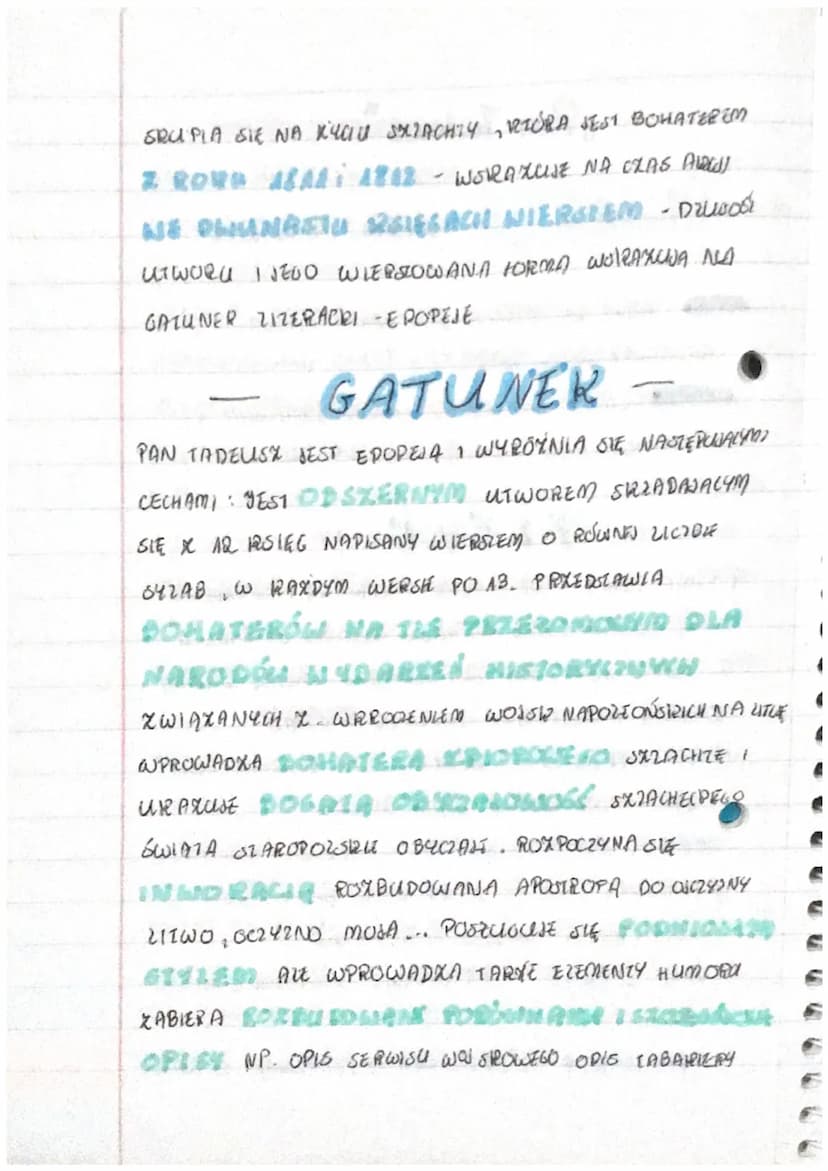 SKUPIA SIĘ NA ŻYCIU SZLACHTY, KTÓRA JEST BOHATEREM
Z ROKU 1811 i 1812 - WSKAZUJE NA CZAS AKCJI
WE DWUNASTU KSIĘGACH WIERSZEM - DŁUGOŚĆ
UTWORU I JEGO WIERSZOWANA FORMA WSKAZUJĄ NA
GATUNEK LITERACKI - EPOPEJĘ
— GATUNEK —
PAN TADEUSZ JEST EPOPEJĄ I WYRÓŻNIA SIĘ NASTĘPUJĄCYMI
CECHAMI: JEST OBSZERNYM UTWOREM SKŁADAJĄCYM
SIĘ Z 12 KSIĘG NAPISANY WIERSZEM O RÓWNEJ LICZBIE
SYLAB, W KAŻDYM WERSIE PO 13. PRZEDSTAWIA
BOHATERÓW NA TLE PRZEŁOMOWYCH DLA
NARODÓW WYDARZEŃ HISTORYCZNYCH
ZWIĄZANYCH Z WKROCZENIEM WOJSK NAPOLEOŃSKICH NA LITWĘ
WPROWADZA BOHATERA ZBIOROWEGO SZLACHTĘ I
UKAZUJE BOGATĄ OBYCZAJOWOŚĆ SZLACHECKIEGO
ŚWIATA STAROPOLSKIE OBYCZAJE. ROZPOCZYNA SIĘ
INWOKACJĄ ROZBUDOWANA APOSTROFĄ DO OJCZYZNY
LITWO, OJCZYZNO MOJA... POSŁUGUJE SIĘ PODNIOSŁYM
STYLEM ALE WPROWADZA TAKŻE ELEMENTY HUMORU
ZABIERA ROZBUDOWANE PORÓWNANIA I SZCZEGÓŁOWE
OPISY NP. OPIS SERWISU WOJSKOWEGO OPIS TABAKIERY